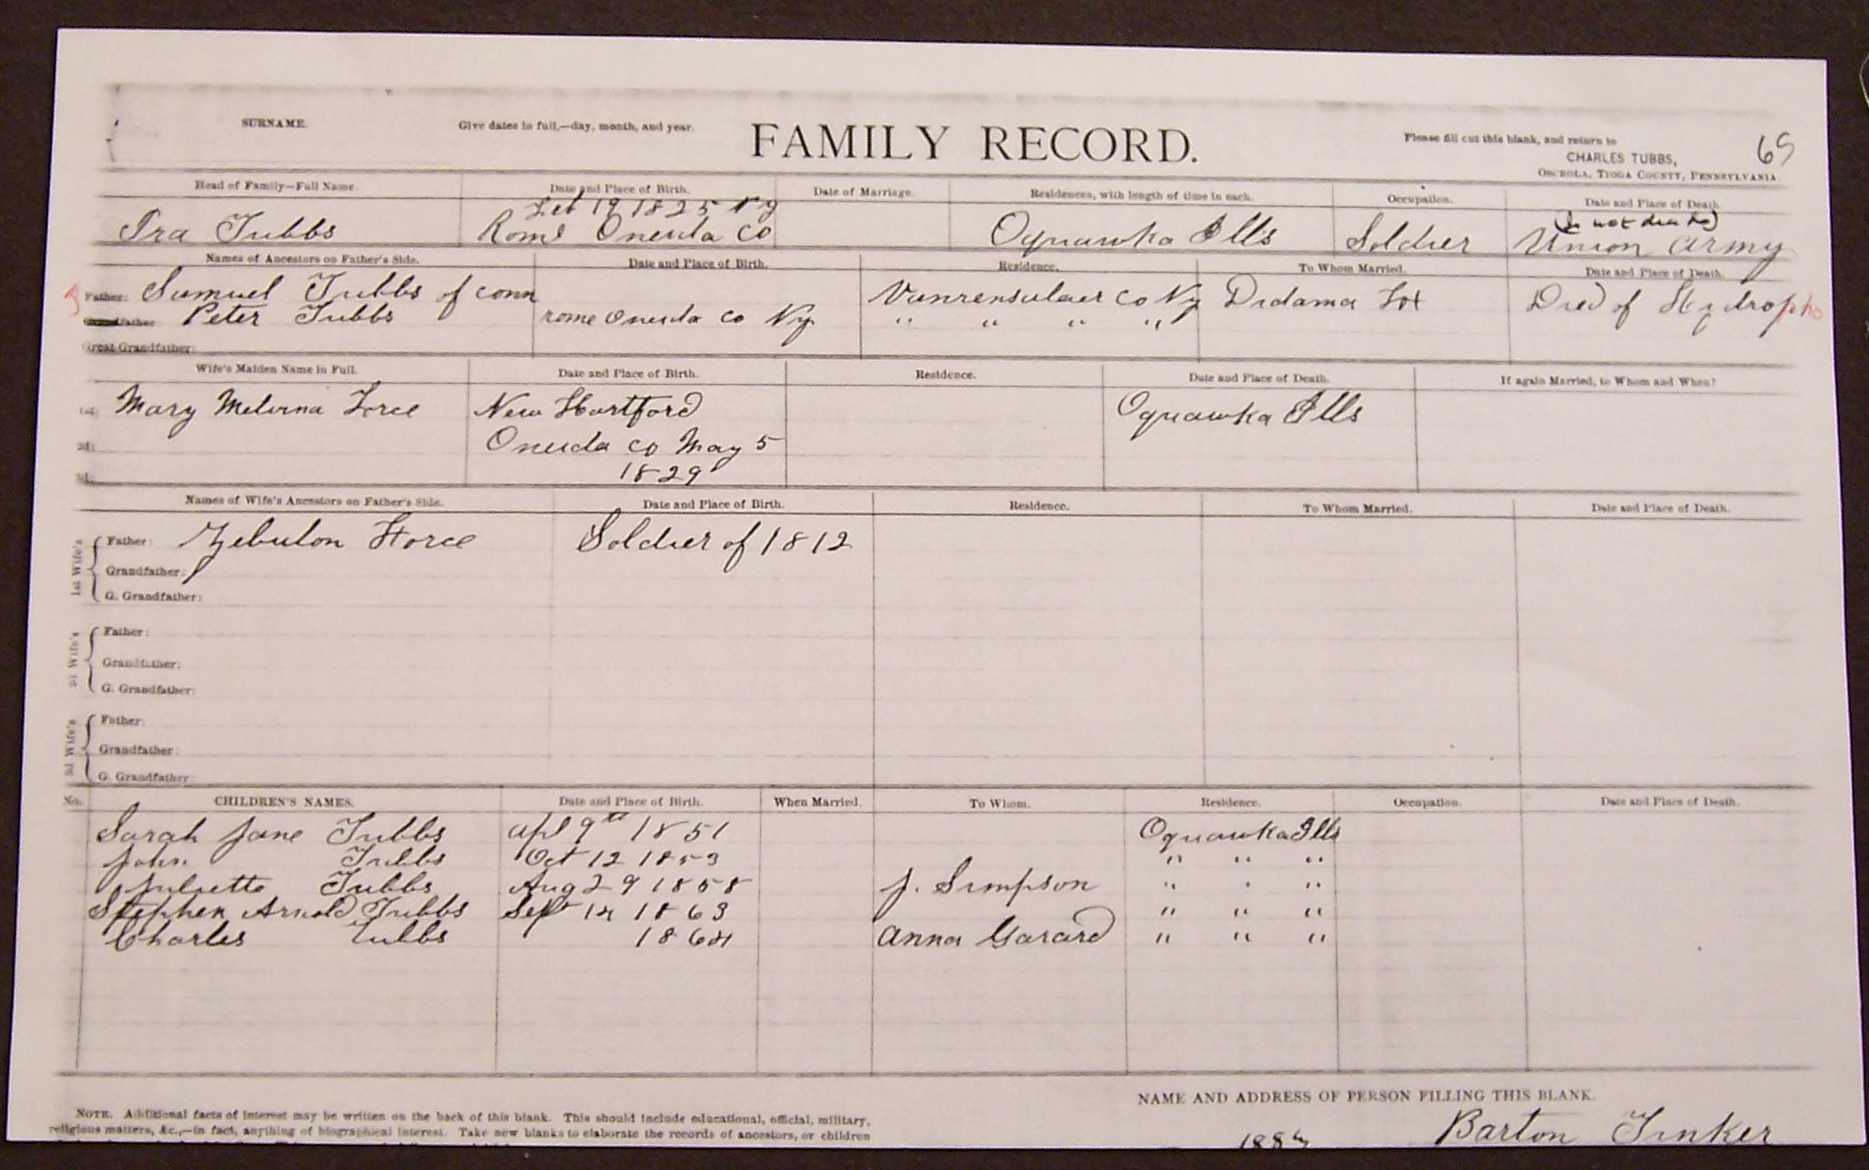 SURNAME. Give dates in full,—day, month, and year. FAMILY RECORD. Please fill out this blank, and return to
CHARLES TUBBS,
OSCEOLA, TIOGA COUNTY, PENNSYLVANIA.
Head of Family—Full Name. Date and Place of Birth. Date of Marriage. Residences, with length of time in each. Occupation. Date and Place of Death
Feb 19 1825 Ny
Ira Tubbs Rome Oneida Co Oquawka Ills Soldier Union army
Names of Ancestors on Father's Side. Date and Place of Birth. Residence. To Whom Married. Date and Place of Death.
Father: Samuel Tubbs of conn Vanrensulaer Co Ny Didama Died of Hydropho
Peter Tubbs rome Oneida Co Ny " " " "
Great Grandfather:
Wife's Maiden Name in Full. Date and Place of Birth. Residence. Date and Place of Death. If again Married, to Whom and When?
1st: Mary Melvina Force New Hartford Oquawka Ills
2d: Oneida co May 5
3d: 1829
Names of Wife's Ancestors on Father's Side. Date and Place of Birth. Residence. To Whom Married. Date and Place of Death.
1st Wife's
Father: Zebulon Force Soldier of 1812
Grandfather:
G. Grandfather:
2d Wife's
Father:
Grandfather:
G. Grandfather:
3d Wife's
Father:
Grandfather:
G. Grandfather:
No. CHILDREN'S NAMES. Date and Place of Birth. When Married. To Whom. Residence. Occupation. Date and Place of Death.
Sarah Jane Tubbs apl 9th 1851 Oquawka Ills
John Tubbs Oct 12 1853 " " "
Julsette Tubbs Aug 29 1858 J. Simpson " " "
Stephen Arnold Tubbs Sept 14 1863 " " "
Charles Tubbs 1864 Anna Garard " " "
NAME AND ADDRESS OF PERSON FILLING THIS BLANK.
NOTE. Additional facts of interest may be written on the back of this blank. This should include educational, official, military,
religious matters, &c.,—in fact, anything of biographical interest. Take new blanks to elaborate the records of ancestors, or children
Barton Tinker